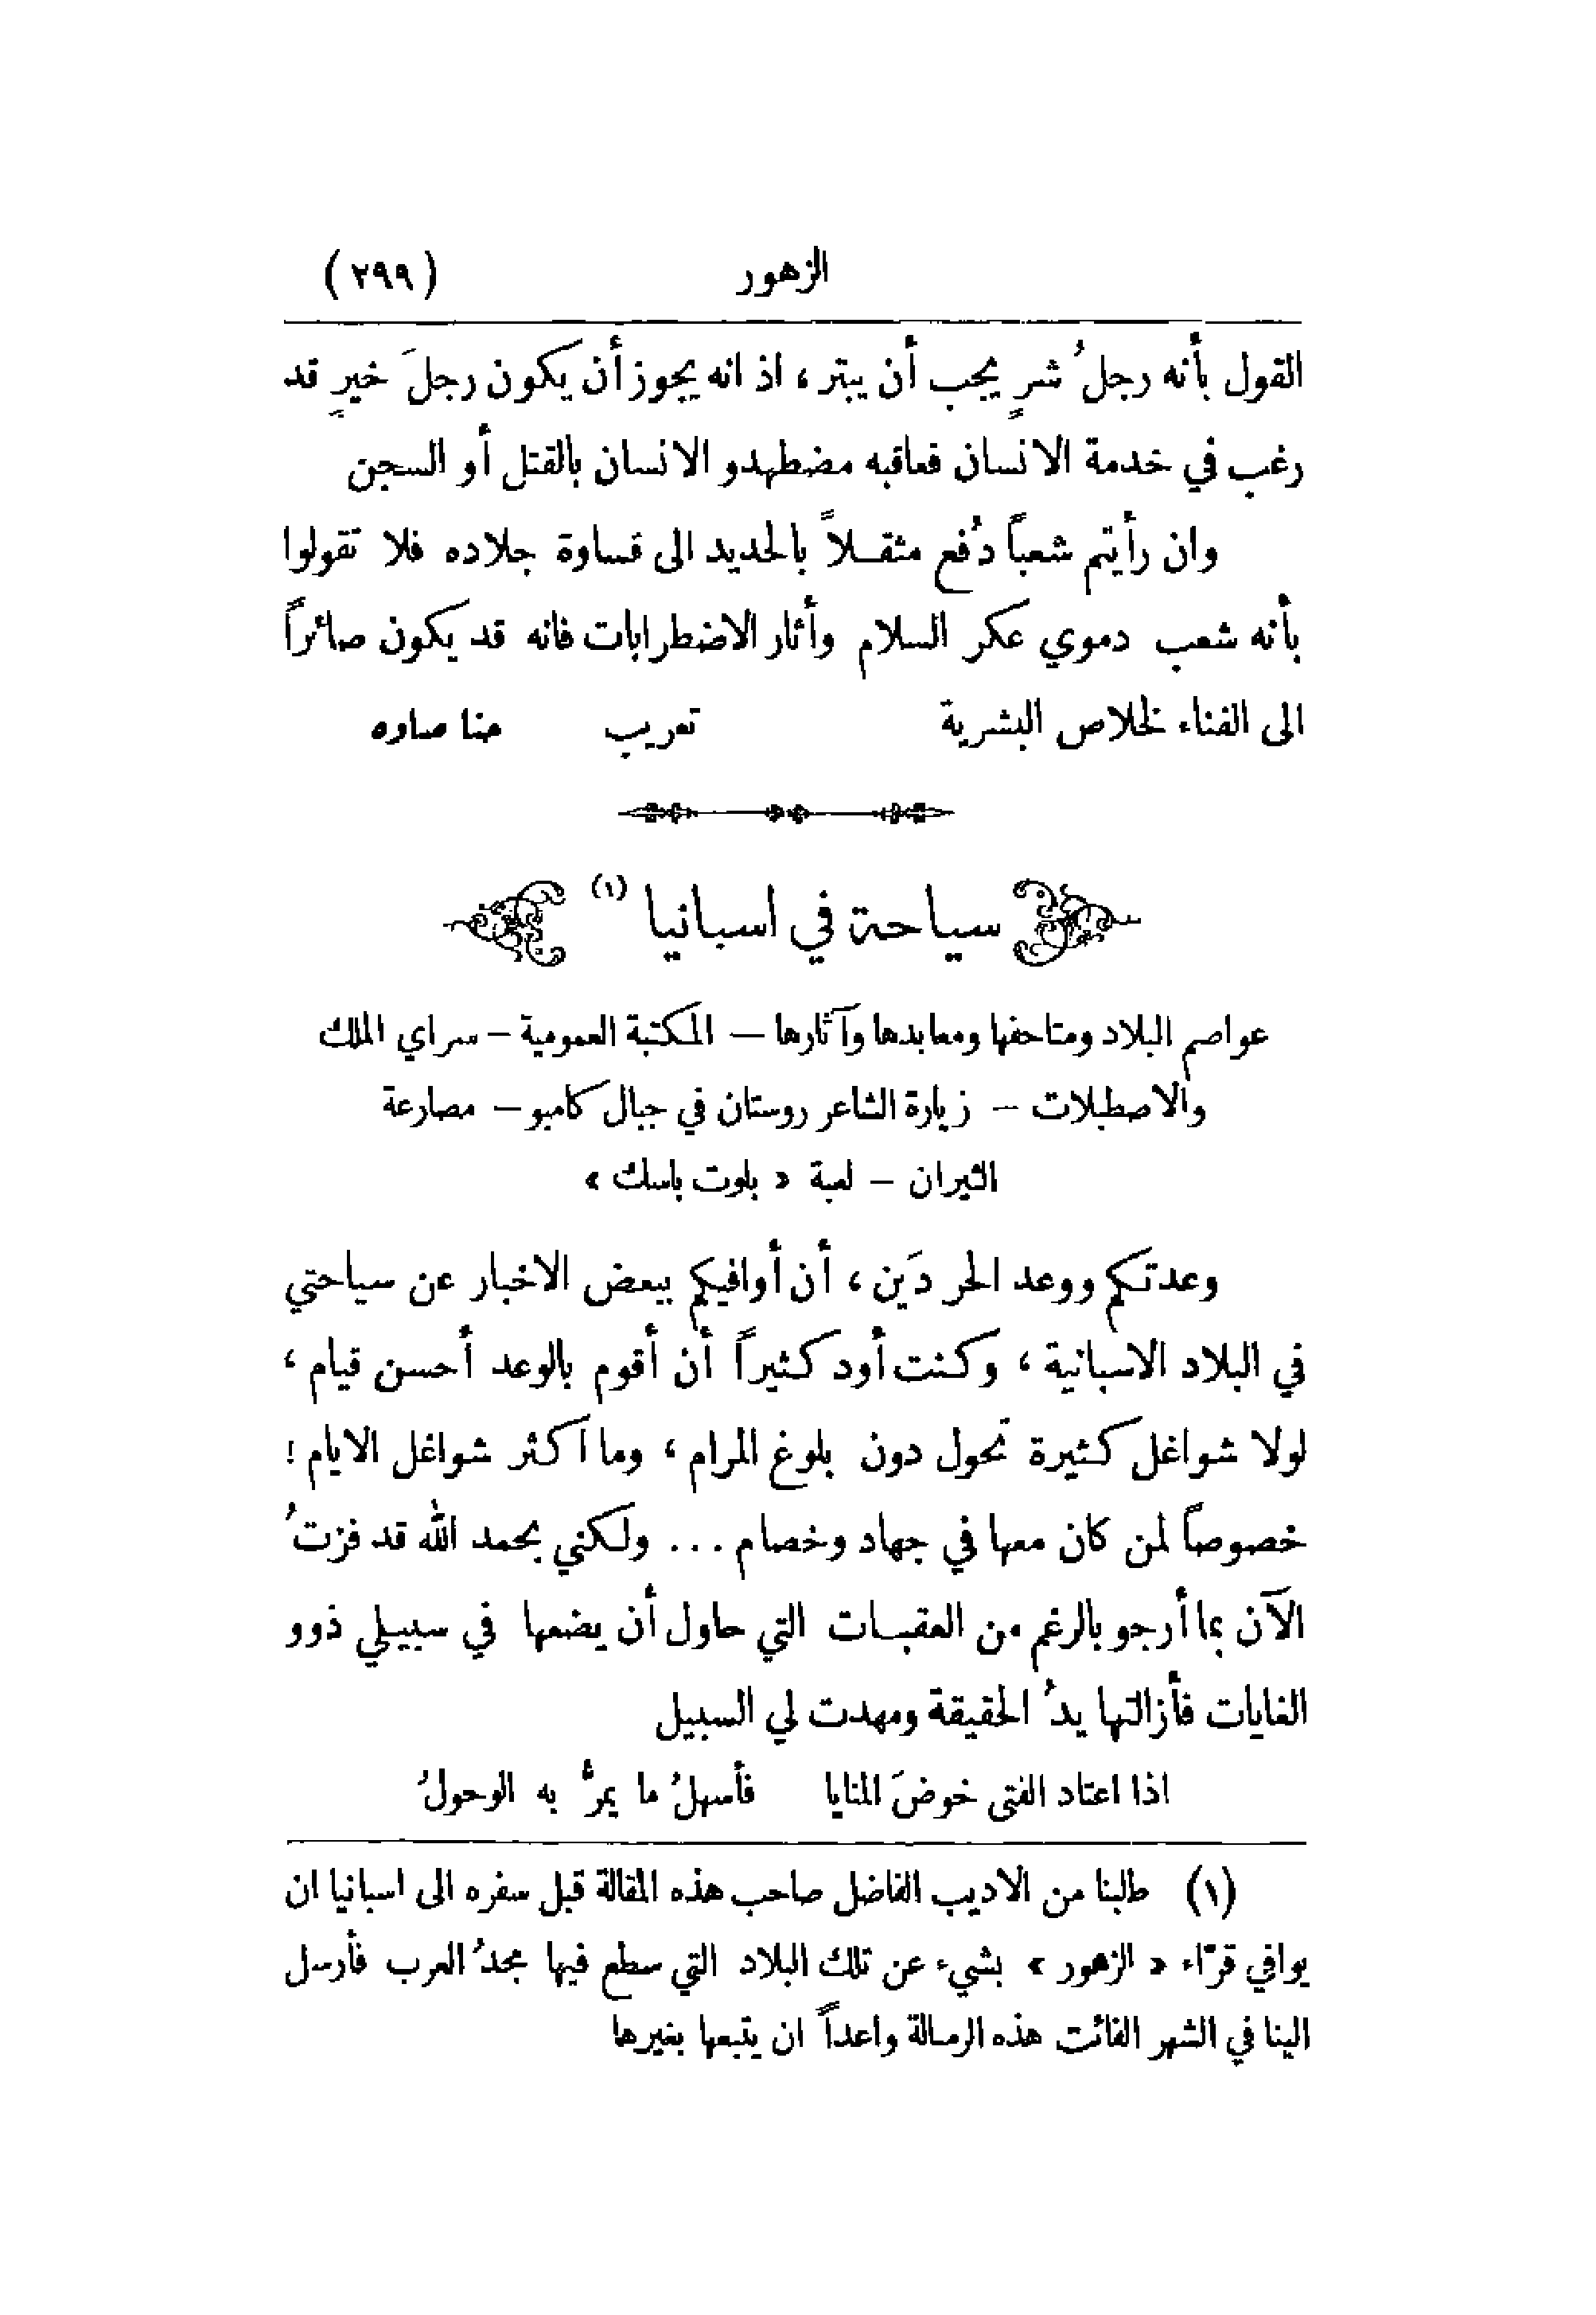 الزهور (٢٩٩)
القول بأنه رجلُ شرٍ يجب أن يبتر، اذ انه يجوز أن يكون رجلَ خيرٍ قد
رغب في خدمة الانسان فعاقبه مضطهدو الانسان بالقتل أو السجن
وان رأيتم شعباً دُفع مثقــلاً بالحديد الى قساوة جلاده فلا تقولوا
بأنه شعب دموي عكر السلام وأثار الاضطرابات فانه قد يكون صائراً
الى الفناء لخلاص البشرية تعريب حنا صاوه
سياحة في اسبانيا (١)
عواصم البلاد ومتاحفها ومعابدها وآثارها — المكتبة العمومية – سراي الملك
والاصطبلات – زيارة الشاعر روستان في جبال كامبو – مصارعة
الثيران – لعبة « بلوت باسك »
وعدتكم ووعد الحر دَين، أن أوافيكم ببعض الاخبار عن سياحتي
في البلاد الاسبانية، وكنت أود كثيراً أن أقوم بالوعد أحسن قيام،
لولا شواغل كثيرة تحول دون بلوغ المرام، وما أكثر شواغل الايام!
خصوصاً لمن كان معها في جهاد وخصام ... ولكني بحمد الله قد فزتُ
الآن بما أرجو بالرغم من العقبــات التي حاول أن يضعها في سبيــلي ذوو
الغايات فأزالتها يدُ الحقيقة ومهدت لي السبيل
اذا اعتاد الفتى خوضَ المنايا فأسهلُ ما يمرُّ به الوحولُ
(١) طلبنا من الاديب الفاضل صاحب هذه المقالة قبل سفره الى اسبانيا ان
يوافي قرّاء « الزهور » بشيء عن تلك البلاد التي سطع فيها مجدُ العرب فأرسل
الينا في الشهر الفائت هذه الرسالة واعداً ان يتبعها بغيرها